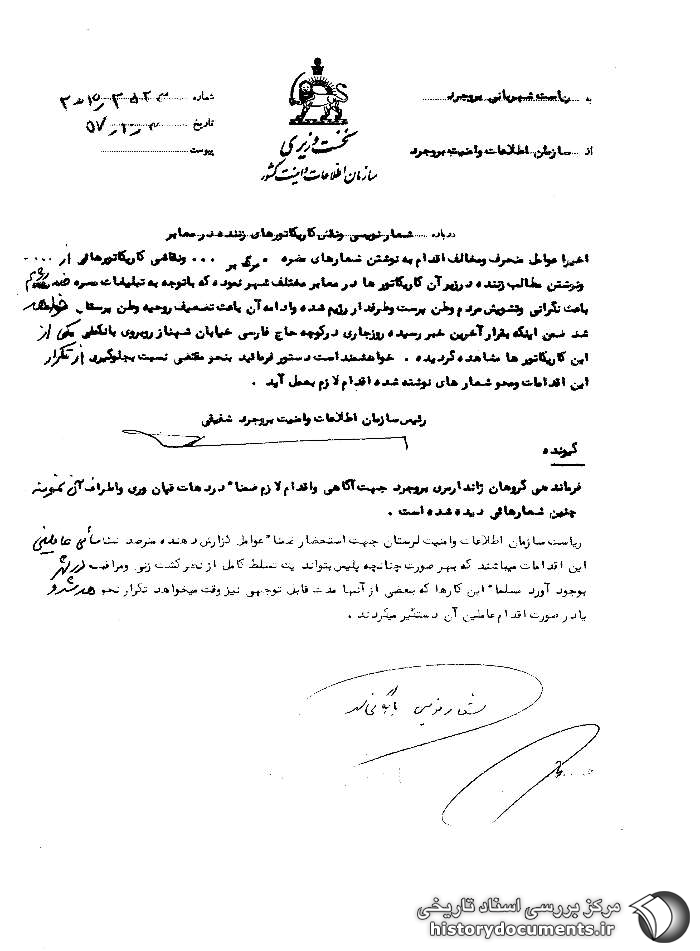 به ریاست شهربانی بروجرد
از سازمان اطلاعات وامنیت بروجرد
نخست وزیری
سازمان اطلاعات و امنیت کشور
شماره
تاریخ
پیوست
درباره شعارنویسی ونقش کاریکاتورهای زننده در معابر
اخیرا عوامل منحرف ومخالف اقدام به نوشتن شعارهای مضره مرگ بر ... ونقاشی کاریکاتورهائی از ....
ونوشتن مطالب زننده در زیر آن کاریکاتور ها در معابر مختلف شهر نموده که باتوجه به تبلیغات مضره ضد رژیم
باعث نگرانی وتشویش مردم وطن پرست وطرفدار رژیم شده وادامه آن باعث تضعیف روحیه وطن پرستان خواهد
شد ضمن اینکه بقرار آخرین خبر رسیده روزجاری در کوچه حاج فارسی خیابان شهناز روبروی بانک ملی یکی از
این کاریکاتور ها مشاهده گردیده . خواهشمند است دستور فرمائید بنحو مقتضی نسبت بجلوگیری از تکرار
این اقدامات ومحو شعار های نوشته شده اقدام لازم بعمل آید .
رئیس سازمان اطلاعات وامنیت بروجرد شفیقی
گیرنده
فرماندهی گروهان ژاندارمری بروجرد جهت آگاهی واقدام لازم ضمنا" در دهات واطراف آن
چنین شعارهائی دیده شده است .
ریاست سازمان اطلاعات وامنیت لرستان جهت استحضار ضمنا" عوامل گزارش دهنده مترصد شناسائی عاملین
این اقدامات میباشند که بهر صورت چنانچه پلیس بتواند یک تسلط کامل از نظر گشت زنی ومراقبت در شهر
بوجود آورد مسلما" این کارها که بعضی از آنها مدت قابل توجهی نیز وقت میخواهد تکرار نخواهد شد و
یا در صورت اقدام عاملین آن دستگیر میگردند .
مرکز بررسی اسناد تاریخی
historydocuments.ir